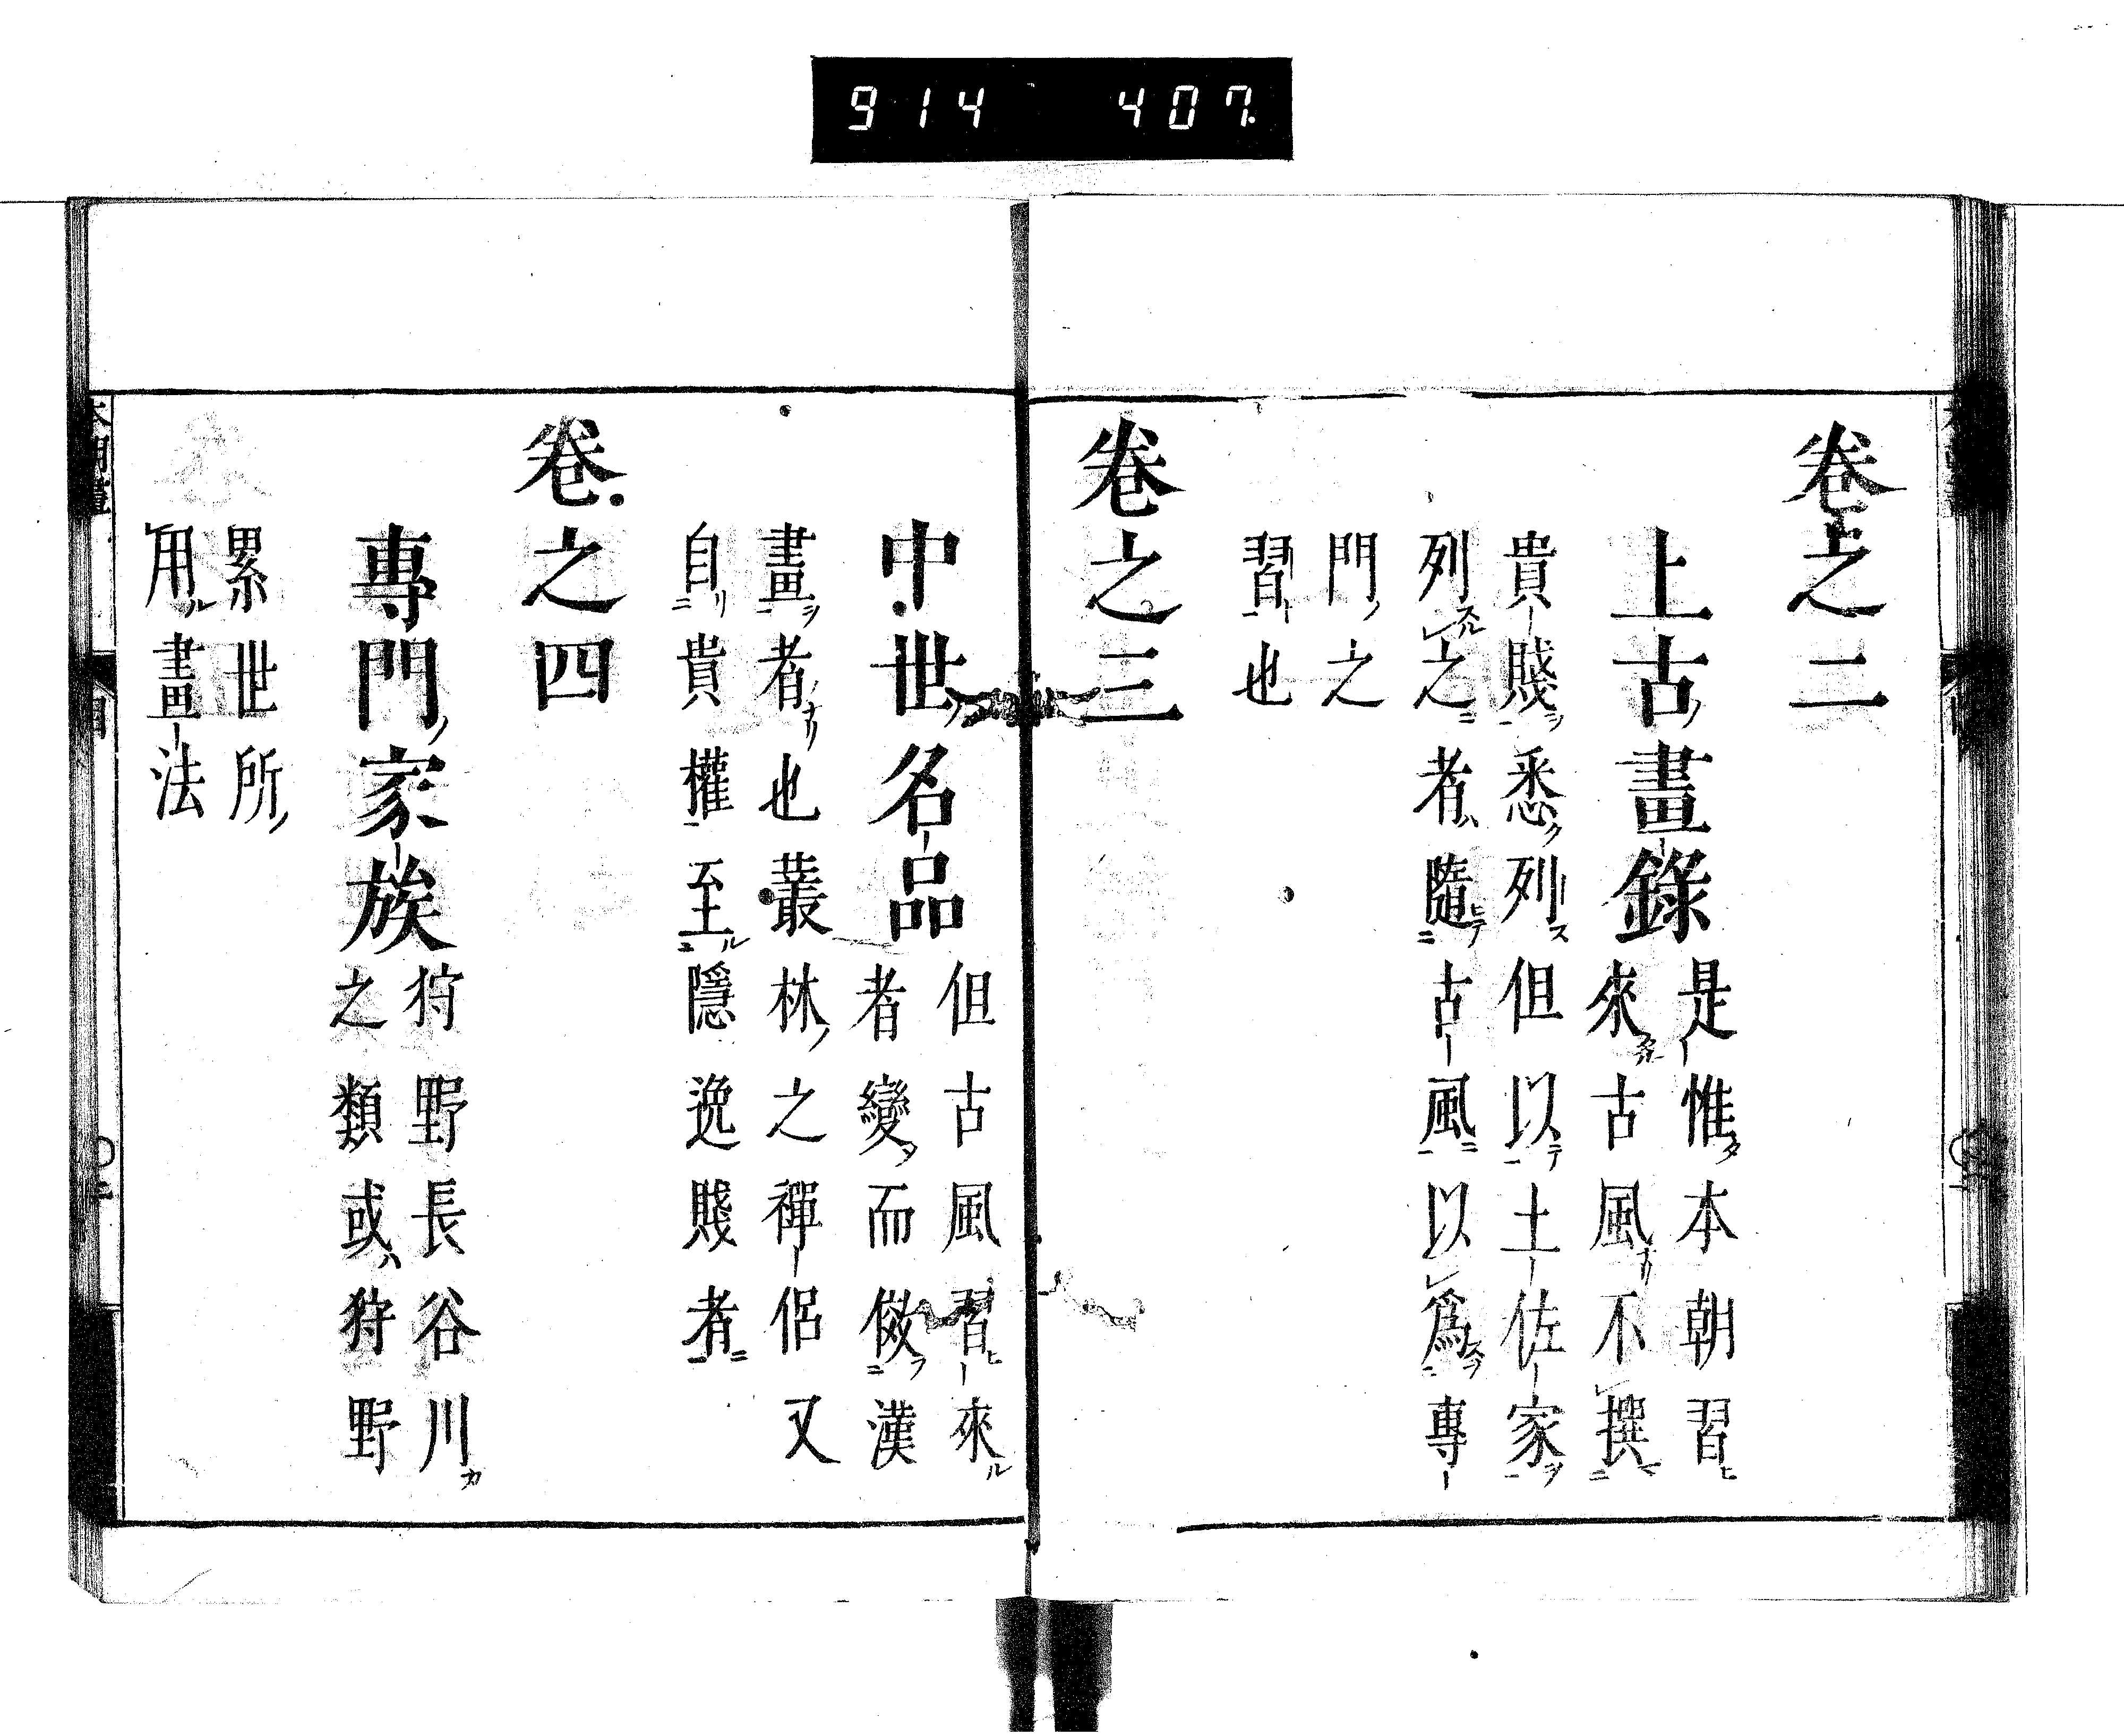 914 407
卷之二
上古畫錄
是惟本朝習
來古風不撰
貴賤悉列但以土佐家
列之者隨古風以爲專
門之
習也
卷之三
中世名品
但古風習來
者變而倣漢
畫者也叢林之禪侶又
自貴權至隱逸賤者
卷之四
專門家族
狩野長谷川
之類或狩野
累世所
用畫法